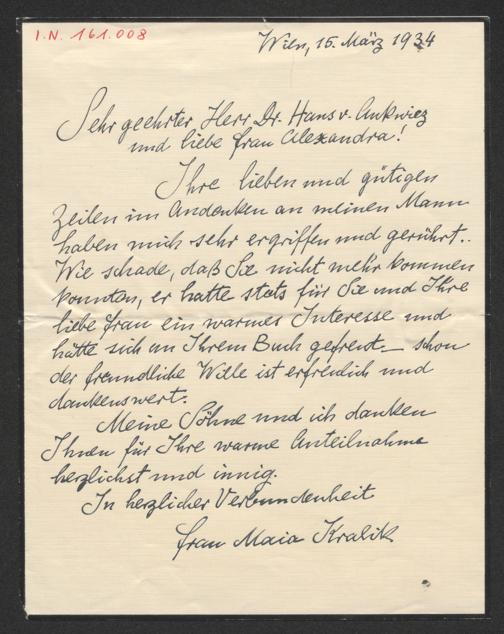 I.N. 161.008
Wien, 15. März 1934
Sehr geehrter Herr Dr. Hans v. Ankwicz
und liebe Frau Alexandra!
Ihre lieben und gütigen
Zeilen im Andenken an meinen Mann
haben mich sehr ergriffen und gerührt..
Wie schade, daß Sie nicht mehr kommen
konnten, er hatte stets für Sie und Ihre
liebe Frau ein warmes Interesse und
hätte sich an Ihrem Buch gefreut – schon
der freundliche Wille ist erfreulich und
dankenswert.
Meine Söhne und ich danken
Ihnen für Ihre warme Anteilnahme
herzlichst und innig.
In herzlicher Verbundenheit
Frau Maia Kralik